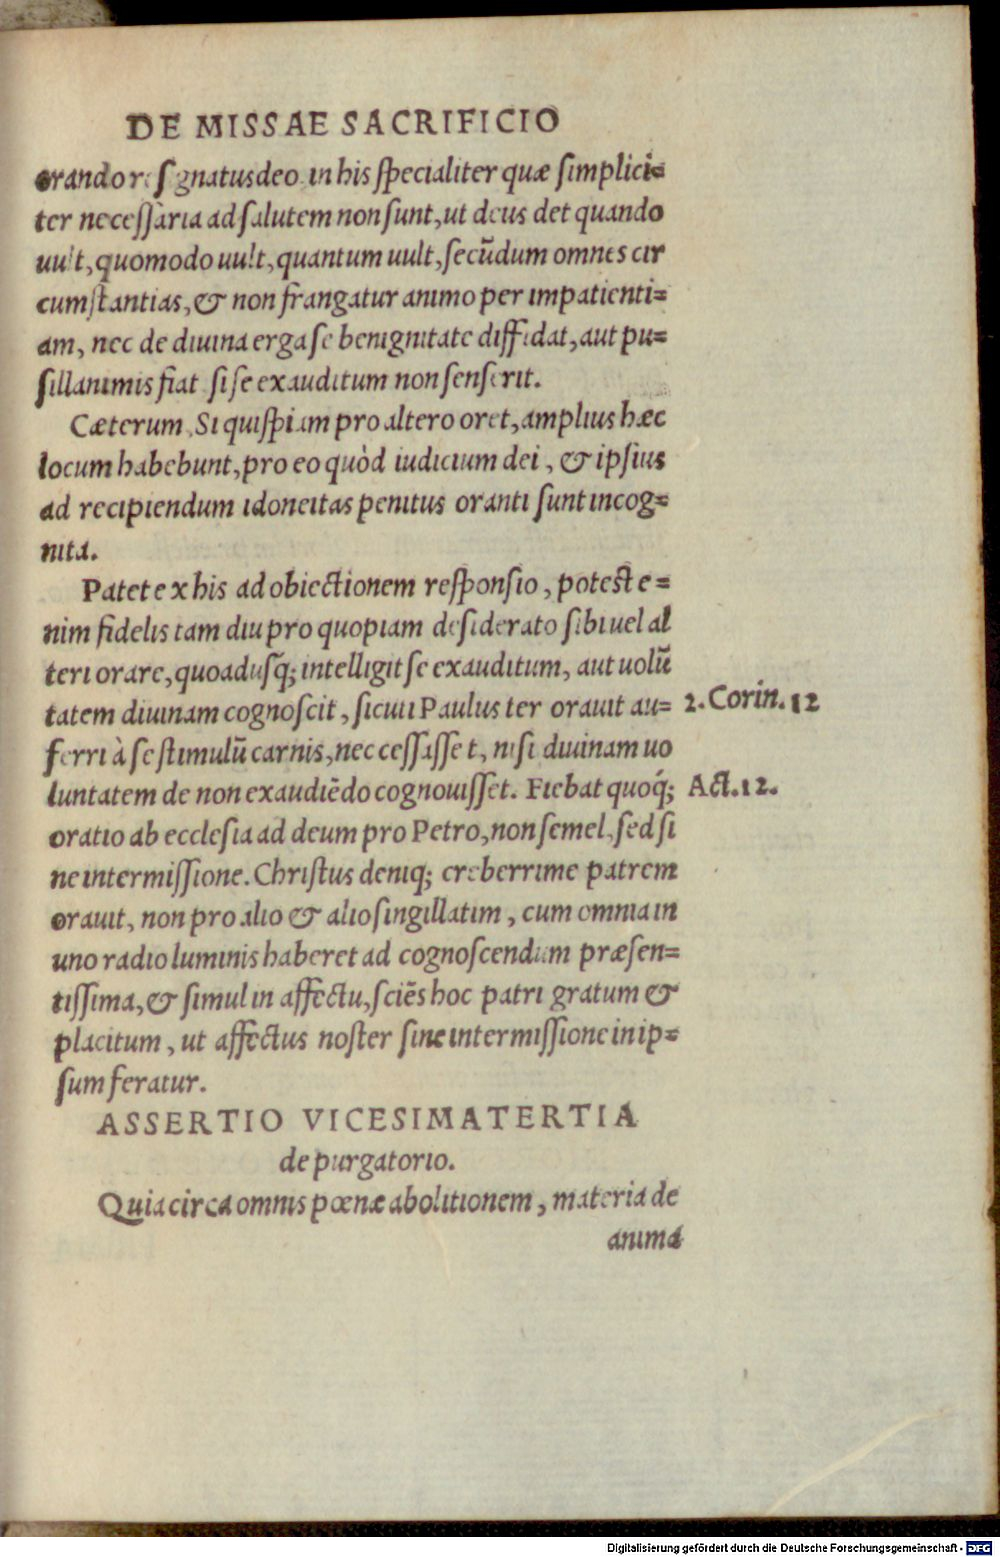 DE MISSAE SACRIFICIO
orando resignatus deo in his specialiter quæ simplici=
ter necessaria ad salutem non sunt, ut deus det quando
uult, quomodo uult, quantum uult, secūdum omnes cir
cumstantias, & non frangatur animo per impatienti=
am, nec de diuina erga se benignitate diffidat, aut pu=
sillanimis fiat si se exauditum non senserit.
Cæterum Si quispiam pro altero oret, amplius hæc
locum habebunt, pro eo quòd iudicium dei, & ipsius
ad recipiendum idoneitas penitus oranti sunt incog=
nita.
Patet ex his ad obiectionem responsio, potest e=
nim fidelis tam diu pro quopiam desiderato sibi uel al
teri orare, quoadusq; intelligit se exauditum, aut uolū
tatem diuinam cognoscit, sicuti Paulus ter orauit au= 2. Corin. 12
ferri à se stimulū carnis, nec cessasset, nisi diuinam uo
luntatem de non exaudiēdo cognouisset. Fiebat quoq́; Act. 12.
oratio ab ecclesia ad deum pro Petro, non semel, sed si
ne intermissione. Christus deniq; creberrime patrem
orauit, non pro alio & alio singillatim, cum omnia in
uno radio luminis haberet ad cognoscendum præsen=
tissima, & simul in affectu, sciēs hoc patri gratum &
placitum, ut affectus noster sine intermissione in ip=
sum feratur.
ASSERTIO VICESIMATERTIA
de purgatorio.
Quia circa omnis pœnæ abolitionem, materia de
anima
Digitalisierung gefördert durch die Deutsche Forschungsgemeinschaft - DFG